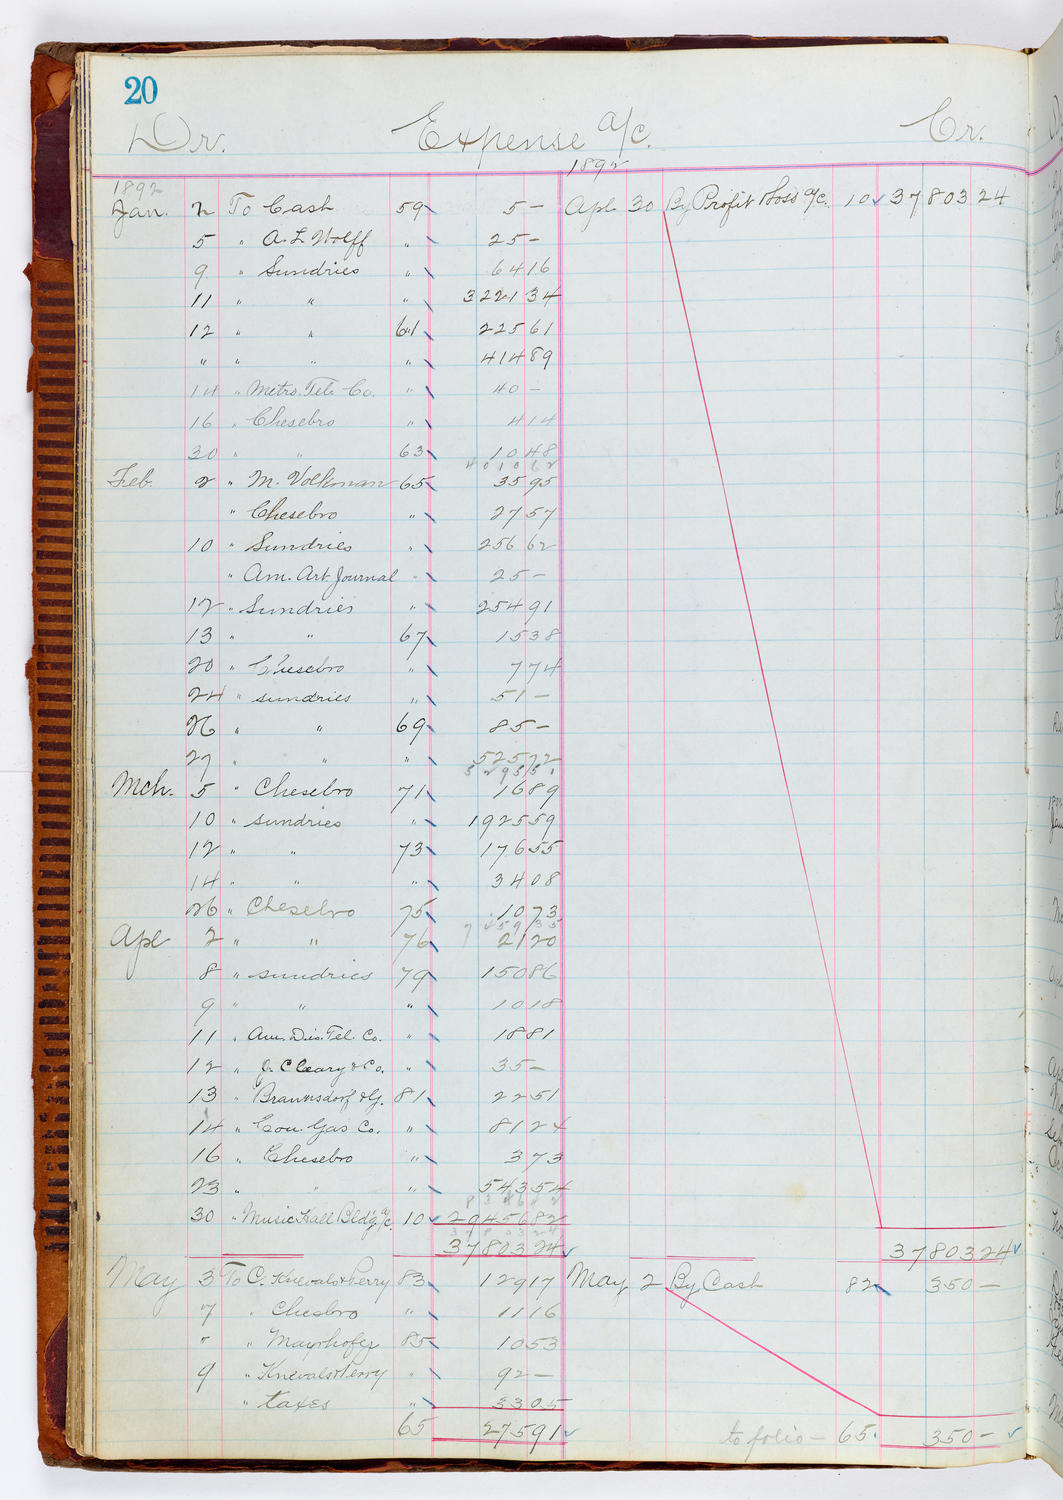 20
Dr. Expense a/c. Cr.
1892 1892
Jan. 2 To Cash 59 5 – Apl. 30 By Profit & Loss a/c. 10 37803 24
5 " A. L. Wolff " 25 –
9 " Sundries " 64 16
11 " " " 3221 34
12 " " 61 225 61
" " " " 414 89
14 " Metro. Tel. Co. " 40 –
16 " Chesebro " 4 14
30 " " 63 10 48
4010 62
Feb. 2 " M. Volkman 65 35 95
" Chesebro " 27 57
10 " Sundries " 256 62
" Am. Art Journal " 25 –
12 " Sundries " 254 91
13 " " 67 15 38
20 " Chesebro " 7 74
24 " sundries " 51 –
26 " " 69 85 –
27 " " " 525 72
Mch. 5 " Chesebro 71 16 89
10 " sundries " 1925 59
12 " " 73 176 55
14 " " " 34 08
26 " Chesebro 75 10 73
Apl 2 " " 76 21 20
8 " sundries 79 150 86
9 " " " 10 18
11 " Am. Dis. Tel. Co. " 18 81
12 " J. Cleary & Co. " 35 –
13 " Braunsdorf & G. 81 22 51
14 " Con. Gas Co. " 81 24
16 " Chesebro " 3 73
23 " " " 543 54
30 " Music Hall Bldg a/c. 10 29456 82
37803 24 37803 24
May 3 To C. Knevals & Perry 83 129 17 May 2 By Cash 82 350 –
7 " Chesbro " 11 16
" " Mayrhofer 85 10 53
9 " Knevals & Perry " 92 –
" taxes " 33 05
65 275 91 to folio – 65 350 –